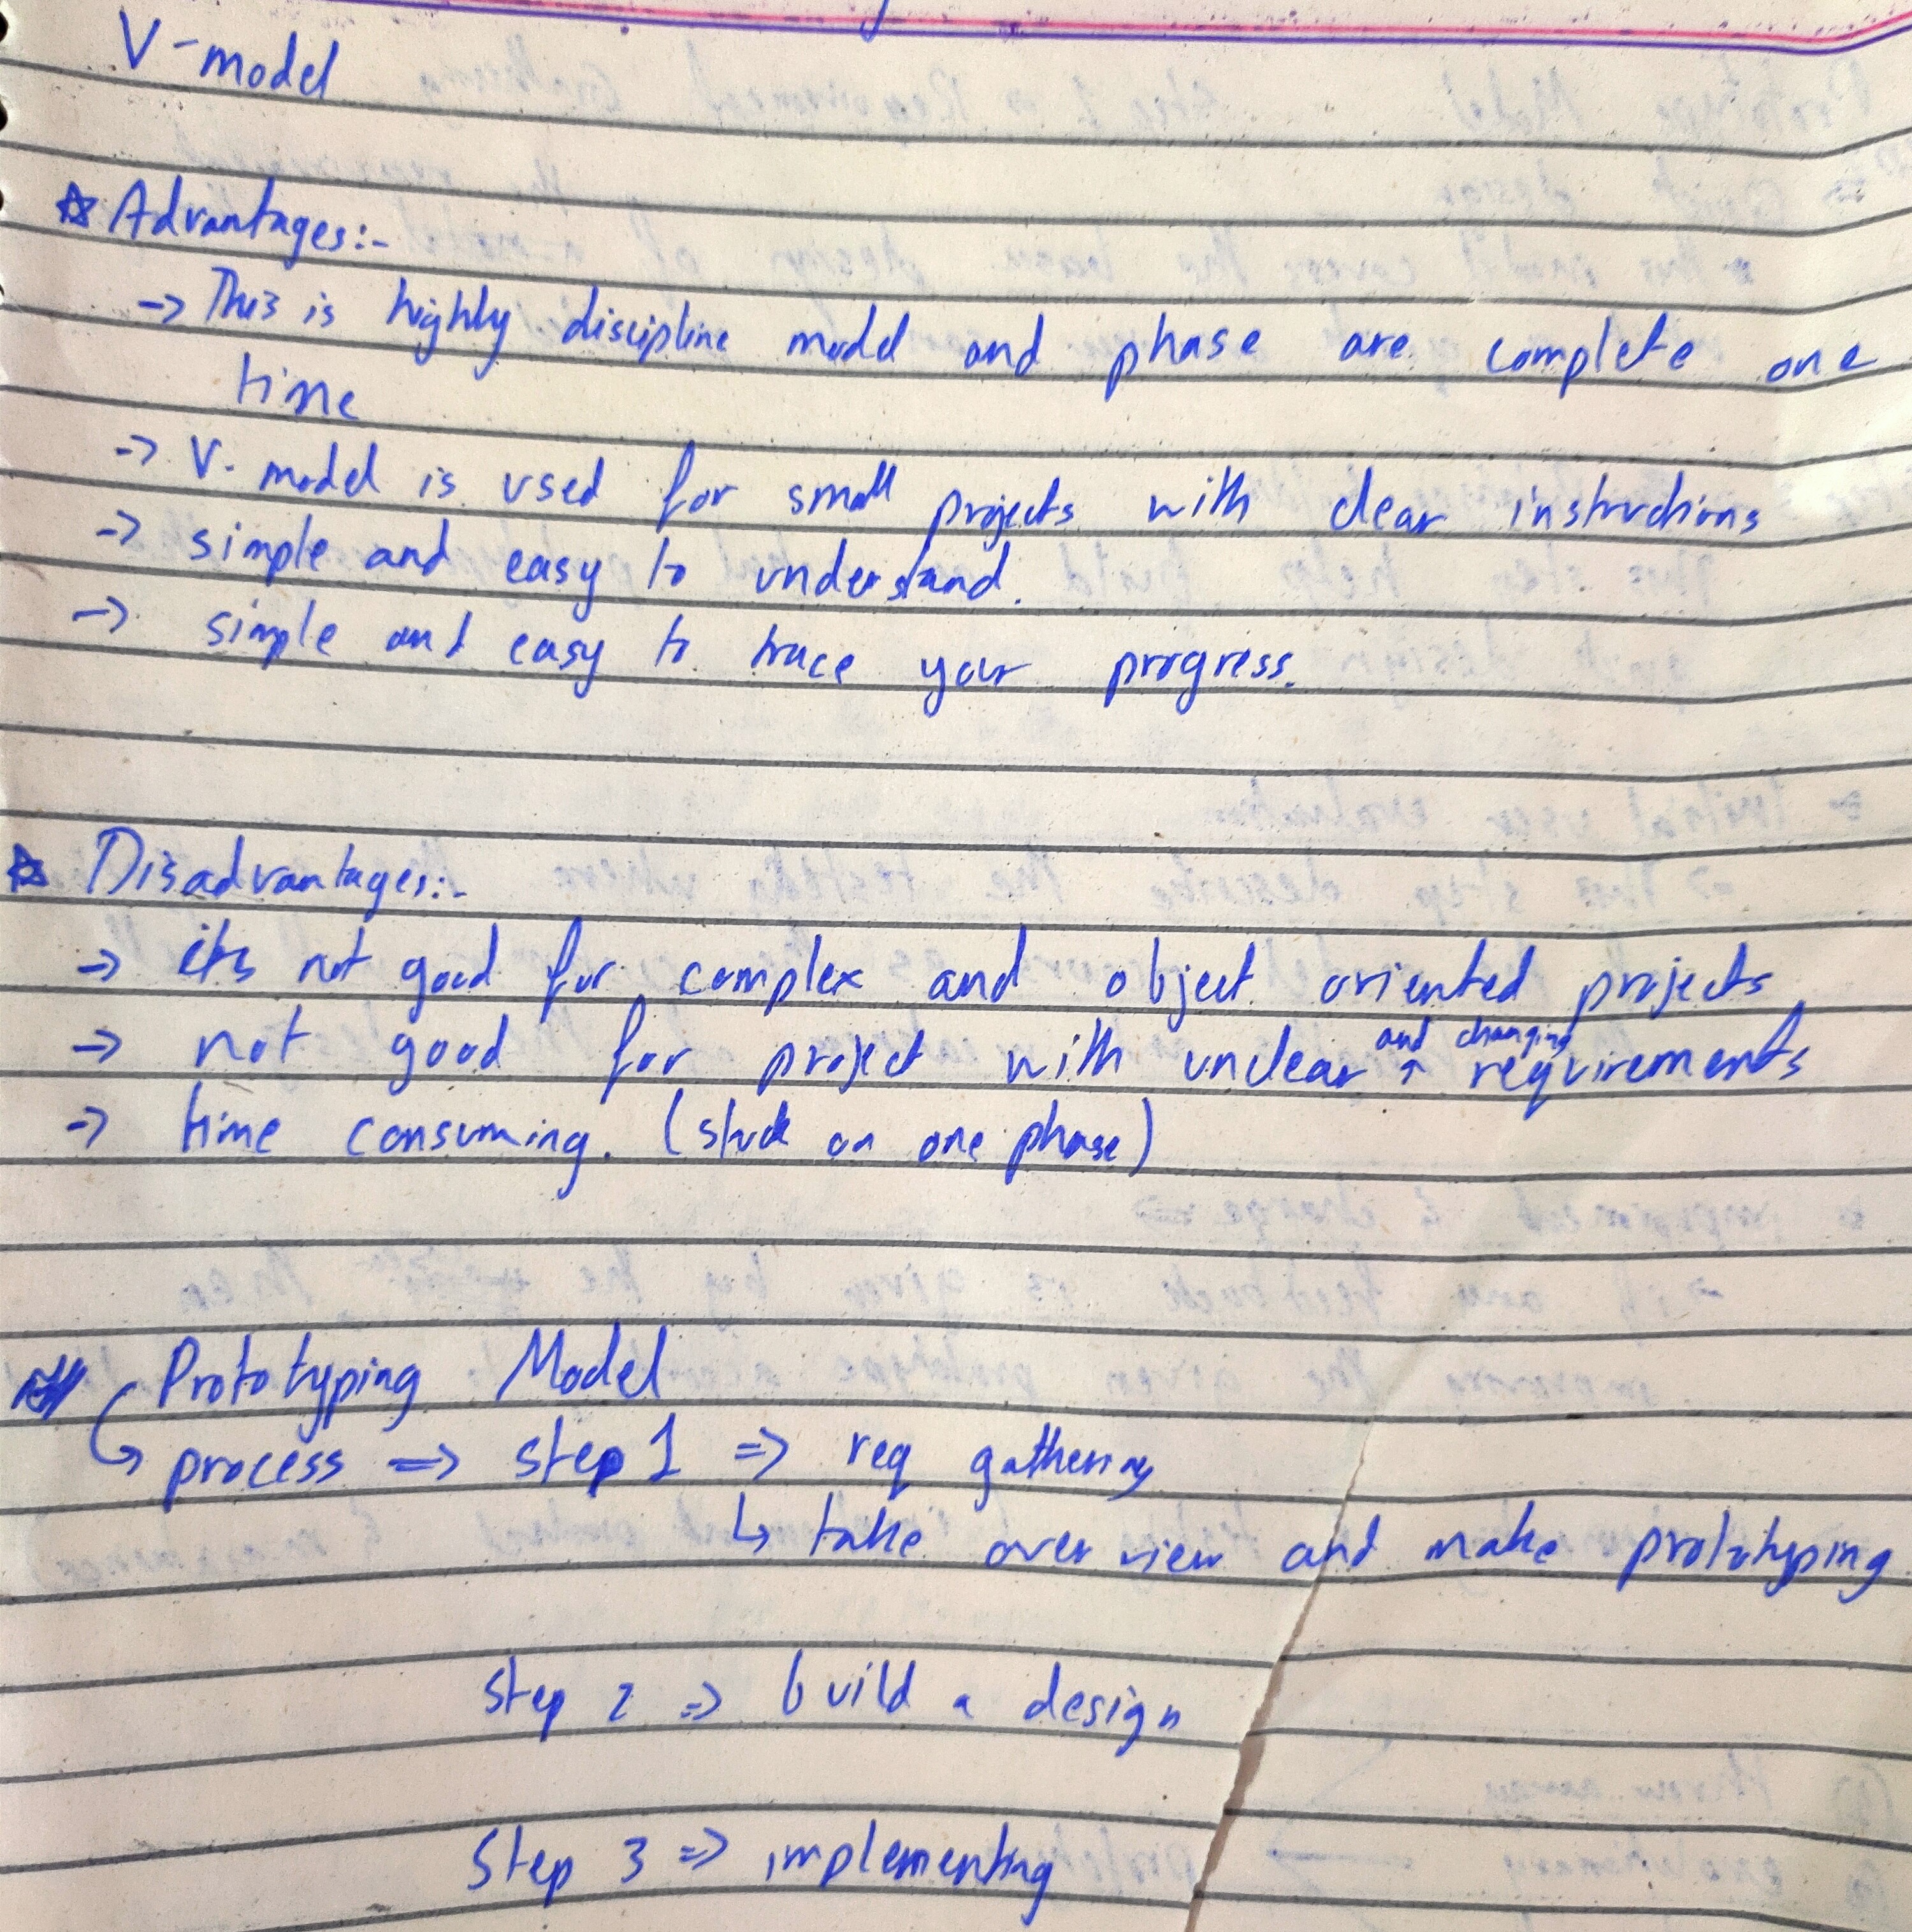 V-model
☆ Advantages:-
-> This is highly discipline model and phase are complete one
time
-> V-model is used for small projects with clear instructions
-> simple and easy to understand.
-> simple and easy to trace your progress.
☆ Disadvantages:-
-> its not good for complex and object oriented projects
-> not good for project with unclear and changing requirements
-> time consuming. (stuck on one phase)
Prototyping Model
process => step 1 => req gathering
↳ take over view and make prototyping
step 2 => build a design
step 3 => implementing